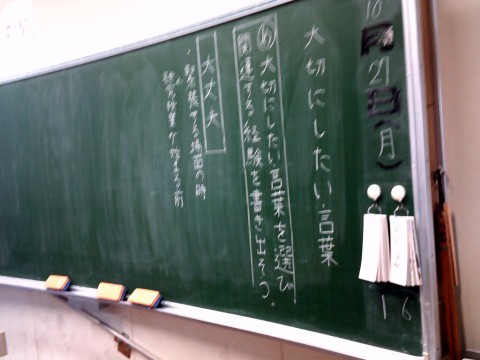 10月21日(月)
16
大切にしたい言葉
め 大切にしたい言葉を選び
関連する経験を書き出そう。
大丈夫
・緊張する場面の時